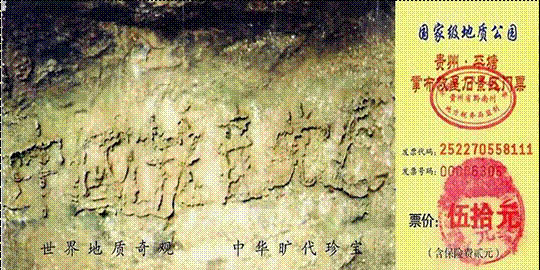 中國共産党亡
世界地质奇观 中华旷代珍宝
国家级地质公园
贵州·平塘
掌布救星石景区门票
贵州省黔南州
发票代码: 252270558111
发票号码:
票价: 伍拾元
(含保险费贰元)